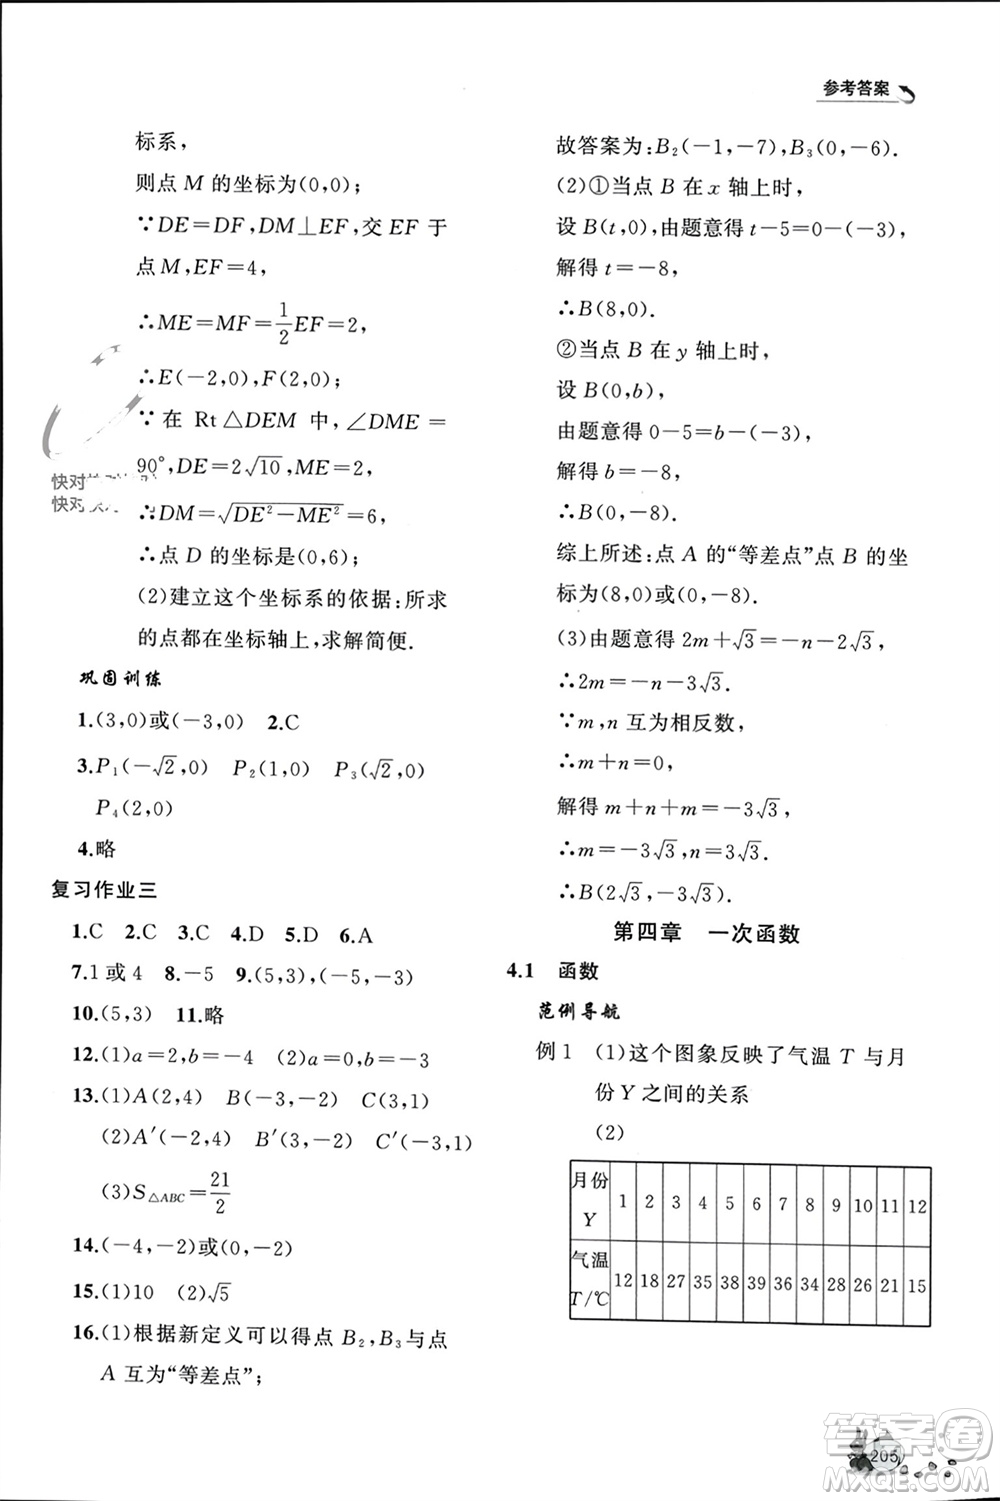 参考答案
标系,
则点 M 的坐标为(0,0);
∵DE=DF,DM⊥EF,交 EF 于
点 M,EF=4,
∴ME=MF=1/2EF=2,
∴E(-2,0),F(2,0);
∵在 Rt△DEM 中,∠DME=
90°,DE=2√10,ME=2,
∴DM=√(DE²-ME²)=6,
∴点 D 的坐标是(0,6);
(2)建立这个坐标系的依据:所求
的点都在坐标轴上,求解简便.
巩固训练
1.(3,0)或(-3,0) 2.C
3.P₁(-√2,0) P₂(1,0) P₃(√2,0)
P₄(2,0)
4.略
复习作业三
1.C 2.C 3.C 4.D 5.D 6.A
7.1 或 4 8.-5 9.(5,3),(-5,-3)
10.(5,3) 11.略
12.(1)a=2,b=-4 (2)a=0,b=-3
13.(1)A(2,4) B(-3,-2) C(3,1)
(2)A′(-2,4) B′(3,-2) C′(-3,1)
(3)S△ABC=21/2
14.(-4,-2)或(0,-2)
15.(1)10 (2)√5
16.(1)根据新定义可以得点 B₂,B₃与点
A 互为“等差点”;
故答案为:B₂(-1,-7),B₃(0,-6).
(2)①当点 B 在 x 轴上时,
设 B(t,0),由题意得 t-5=0-(-3),
解得 t=-8,
∴B(8,0).
②当点 B 在 y 轴上时,
设 B(0,b),
由题意得 0-5=b-(-3),
解得 b=-8,
∴B(0,-8).
综上所述:点 A 的“等差点”点 B 的坐
标为(8,0)或(0,-8).
(3)由题意得 2m+√3=-n-2√3,
∴2m=-n-3√3.
∵m,n 互为相反数,
∴m+n=0,
解得 m+n+m=-3√3,
∴m=-3√3,n=3√3.
∴B(2√3,-3√3).
第四章 一次函数
4.1 函数
范例导航
例 1 (1)这个图象反映了气温 T 与月
份 Y 之间的关系
(2)
月份 Y 1 2 3 4 5 6 7 8 9 10 11 12
气温 T/℃ 12 18 27 35 38 39 36 34 28 26 21 15
205
快对
快对
答案卷